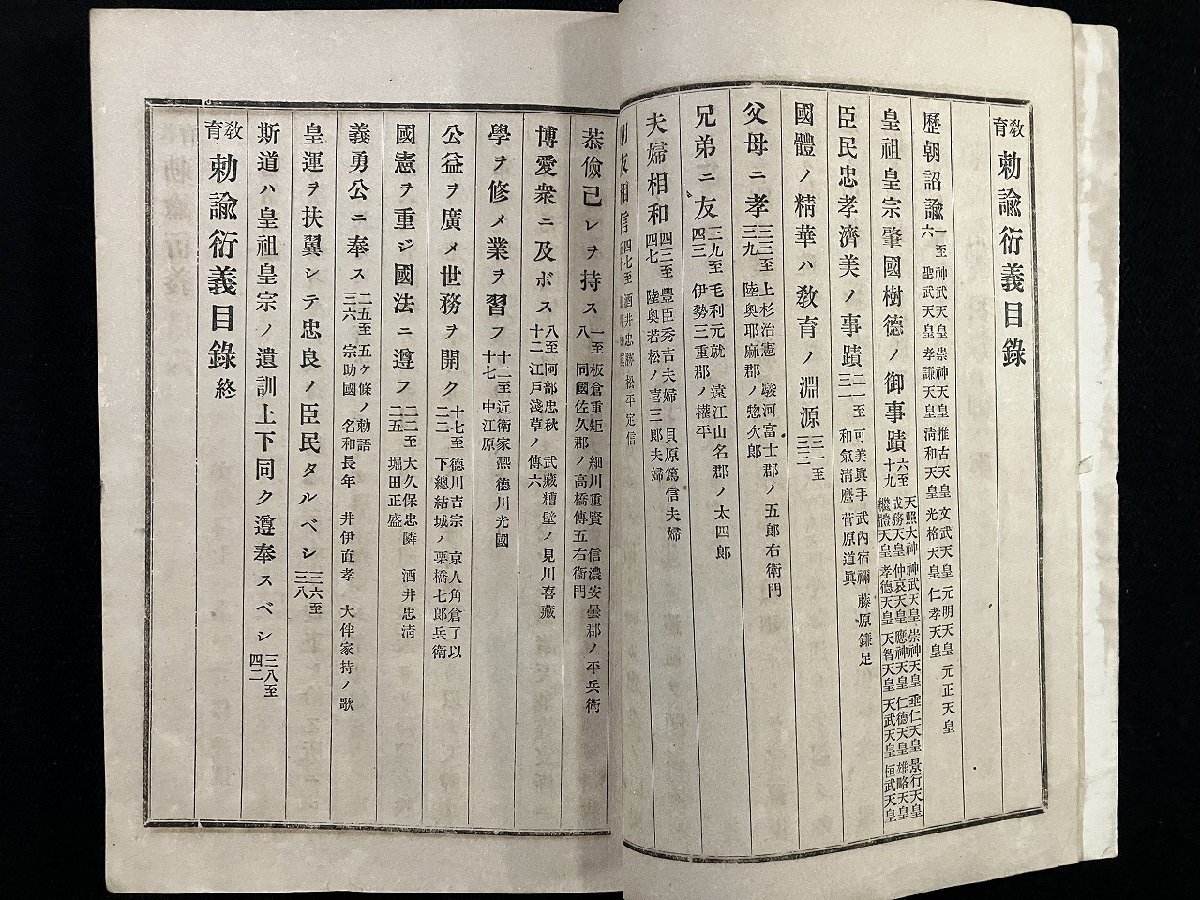 教育 勅諭衍義目錄
歷朝詔諭 一至六 神武天皇 崇神天皇 推古天皇 文武天皇 元明天皇 元正天皇 聖武天皇 孝謙天皇 淸和天皇 光格天皇 仁孝天皇
皇祖皇宗肇國樹德ノ御事蹟 六至十九 天照大神 神武天皇 崇神天皇 垂仁天皇 景行天皇 成務天皇 仲哀天皇 應神天皇 仁德天皇 雄略天皇 繼體天皇 孝德天皇 天智天皇 天武天皇 桓武天皇
臣民忠孝濟美ノ事蹟 二一至三一 可美眞手 武內宿禰 藤原鎌足 和氣淸麿 菅原道眞
國體ノ精華ハ敎育ノ淵源 三一至三三
父母ニ孝 三三至三九 上杉治憲 駿河富士郡ノ五郎右衛門 陸奥耶麻郡ノ惣次郎
兄弟ニ友 三九至四三 毛利元就 遠江山名郡ノ太四郎 伊勢三重郡ノ權平
夫婦相和 四三至四七 豊臣秀吉夫婦 貝原篤信夫婦 陸奥若松ノ喜三郎夫婦
朋友相信 四七至 酒井忠勝 松平定信
恭儉己レヲ持ス 一至八 板倉重矩 細川重賢 信濃安曇郡ノ平兵衛 同國佐久郡ノ高橋傳五右衛門
博愛衆ニ及ボス 八至十二 阿部忠秋 武藏糟壁ノ見川喜藏 江戸淺草ノ傳六
學ヲ修メ業ヲ習フ 十二至十七 近衛家凞 德川光國 中江原
公益ヲ廣メ世務ヲ開ク 十七至二二 德川吉宗 京人角倉了以 下總結城ノ栗橋七郎兵衛
國憲ヲ重ジ國法ニ遵フ 二二至二五 大久保忠隣 酒井忠淸 堀田正盛
義勇公ニ奉ス 二五至三六 五ケ條ノ勅語 井伊直孝 大伴家持ノ歌 宗助國 名和長年
皇運ヲ扶翼シテ忠良ノ臣民タルベシ 三六至三八
斯道ハ皇祖皇宗ノ遺訓上下同ク遵奉スベシ 三八至四二
敎育 勅諭衍義目錄 終